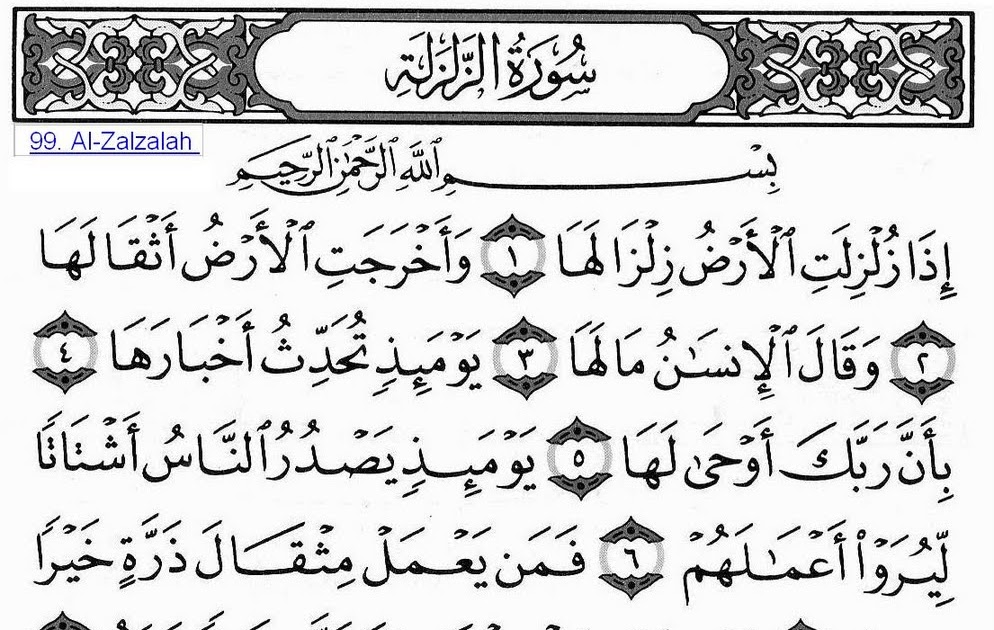 سُورَةُ الزَّلْزَلَةِ
99. Al-Zalzalah
بِسْمِ ٱللَّهِ ٱلرَّحْمَٰنِ ٱلرَّحِيمِ
إِذَا زُلْزِلَتِ ٱلْأَرْضُ زِلْزَالَهَا ١ وَأَخْرَجَتِ ٱلْأَرْضُ أَثْقَالَهَا
٢ وَقَالَ ٱلْإِنسَٰنُ مَا لَهَا ٣ يَوْمَئِذٍ تُحَدِّثُ أَخْبَارَهَا ٤
بِأَنَّ رَبَّكَ أَوْحَىٰ لَهَا ٥ يَوْمَئِذٍ يَصْدُرُ ٱلنَّاسُ أَشْتَاتًا
لِّيُرَوْا۟ أَعْمَٰلَهُمْ ٦ فَمَن يَعْمَلْ مِثْقَالَ ذَرَّةٍ خَيْرًا